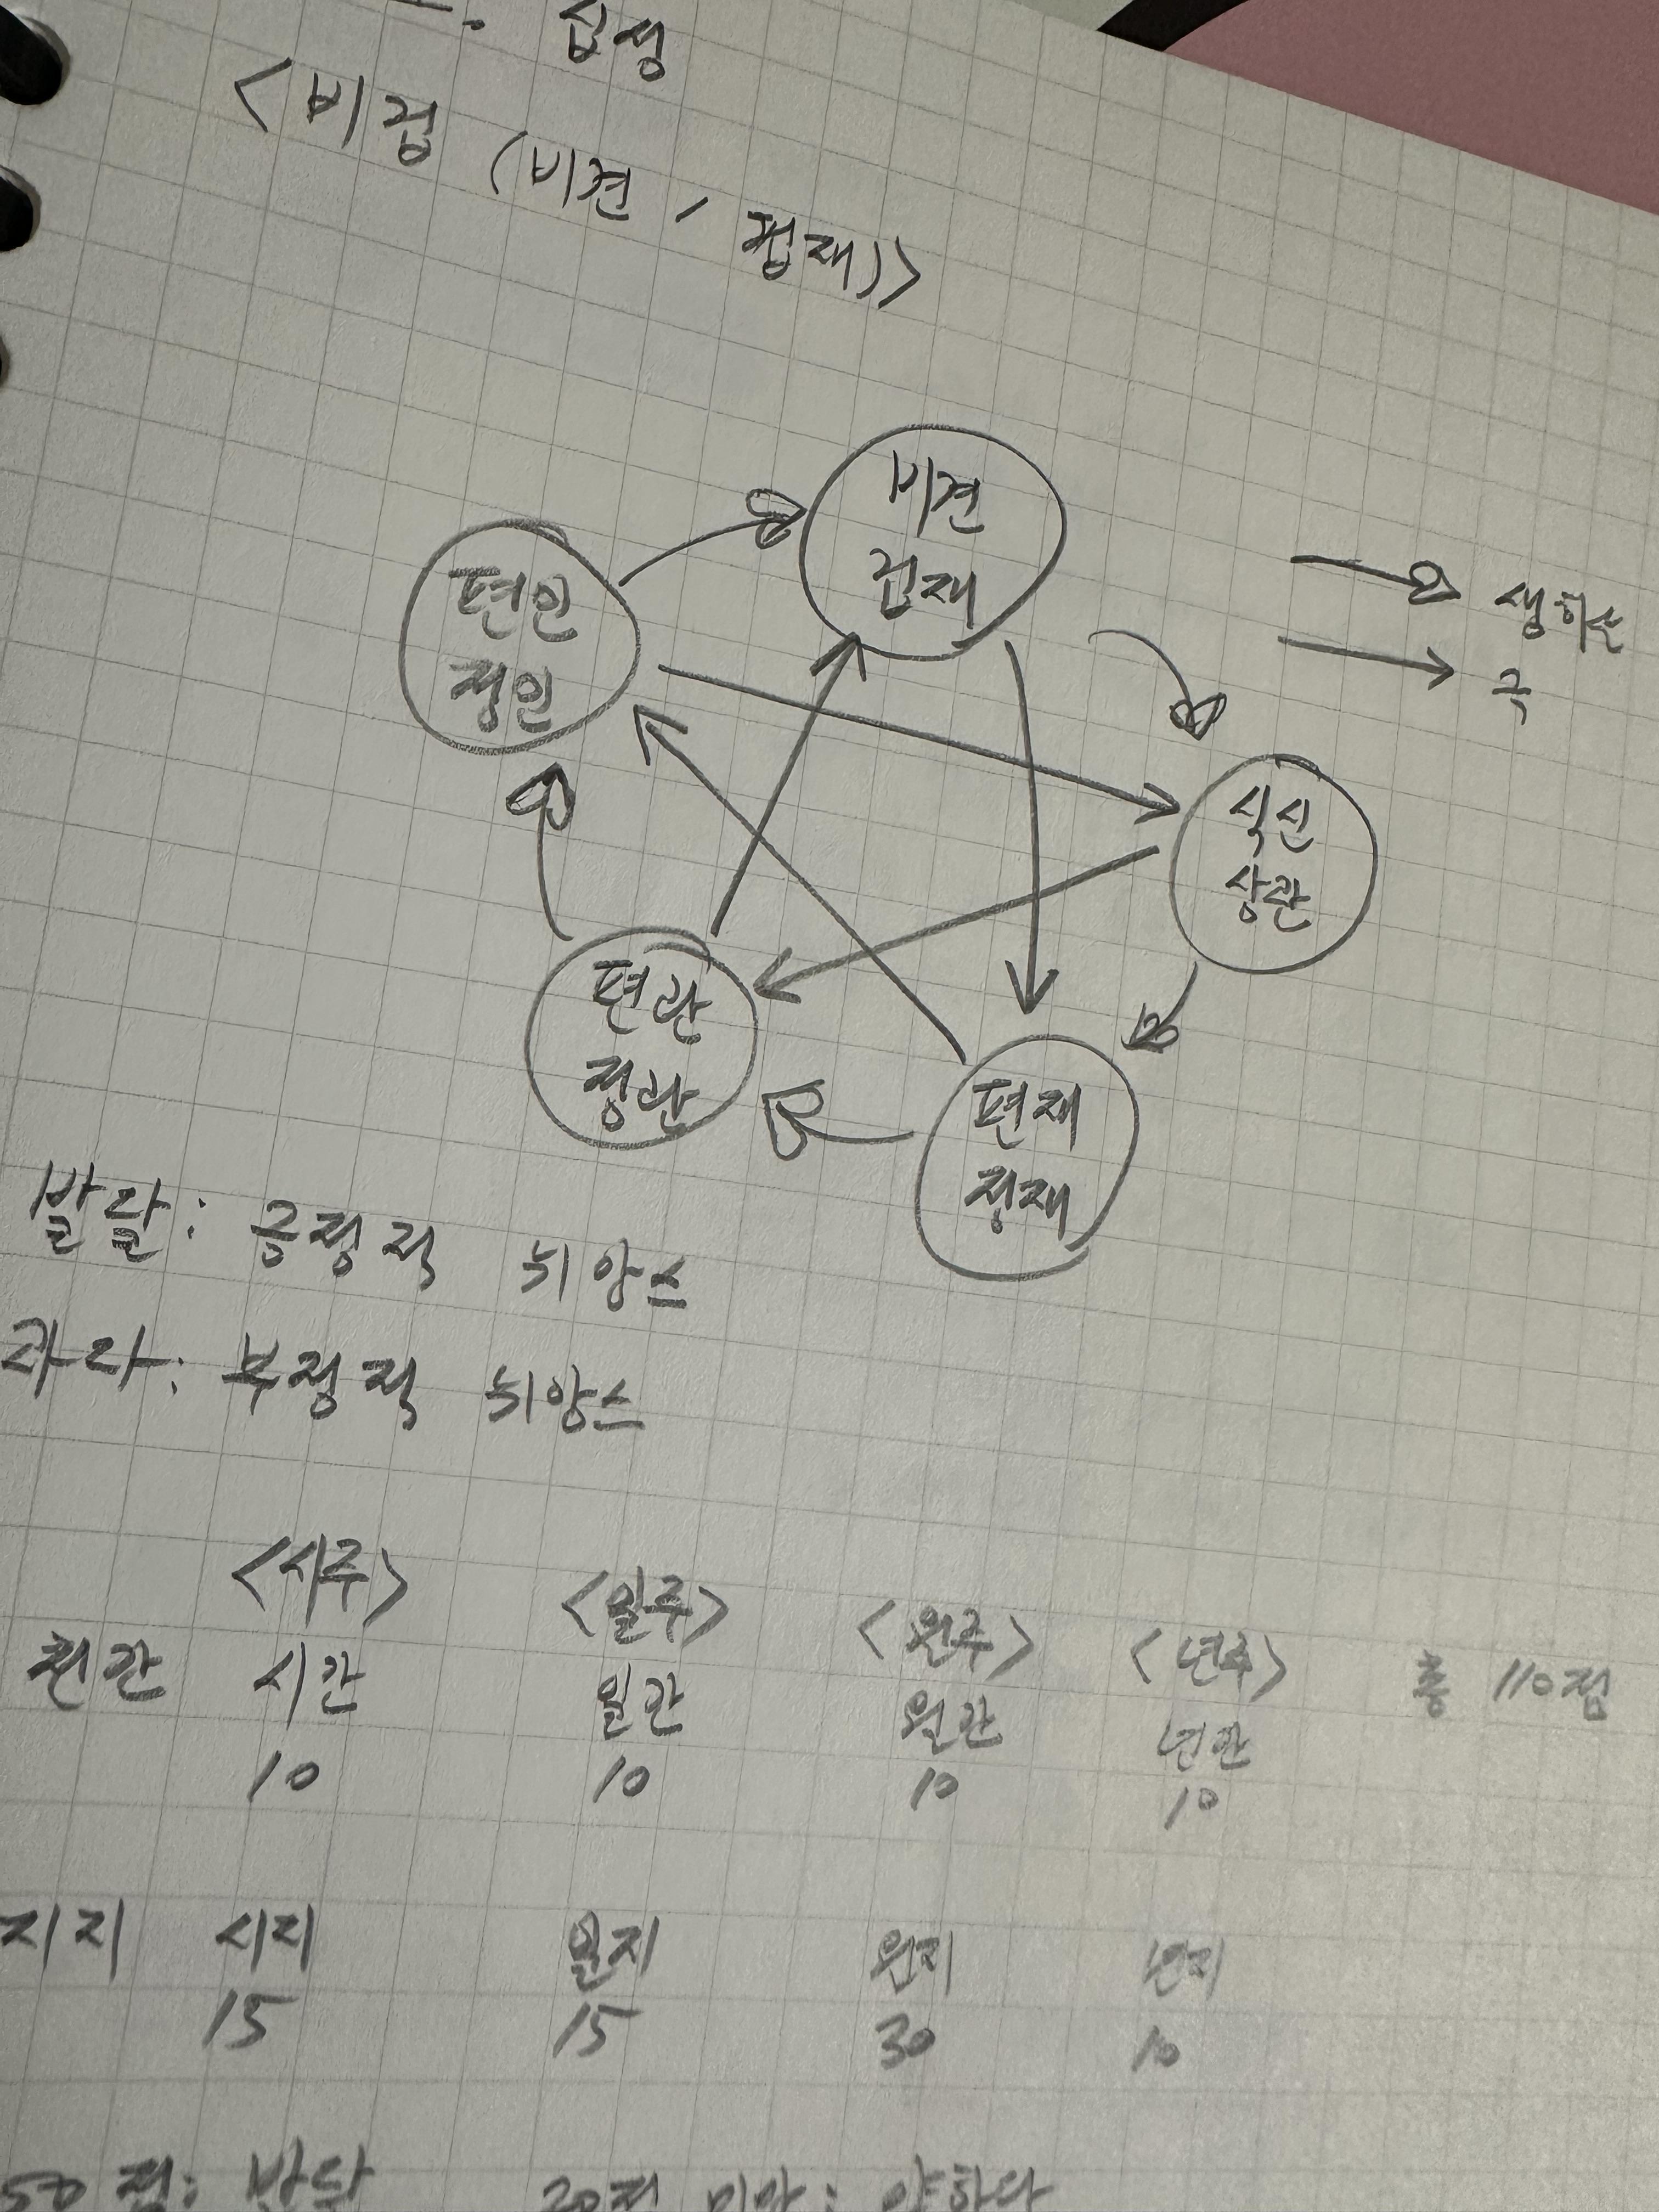 십성
<비겁 (비견, 겁재)>
비견
겁재
편인
정인
생하는
극
식신
상관
편관
정관
편재
정재
발달: 긍정적 뉘앙스
과다: 부정적 뉘앙스
<시주> <일주> <월주> <년주>
천간 시간 일간 월간 년간 총 110점
10 10 10 10
지지 시지 일지 월지 년지
15 15 30 10
50점: 발달 20점 미만: 약하다